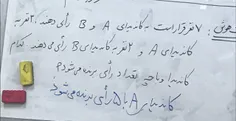 هوش: ۷ نفر قرار است به کاندیدای A و B رأی دهند، ۲ نفر به
کاندیدای A و ۲ نفر به کاندیدای B رأی می دهد کدام
کاندیدا و با چه تعداد رأی برنده می شود؟
کاندیدای A با ۵ رأی برنده می شود